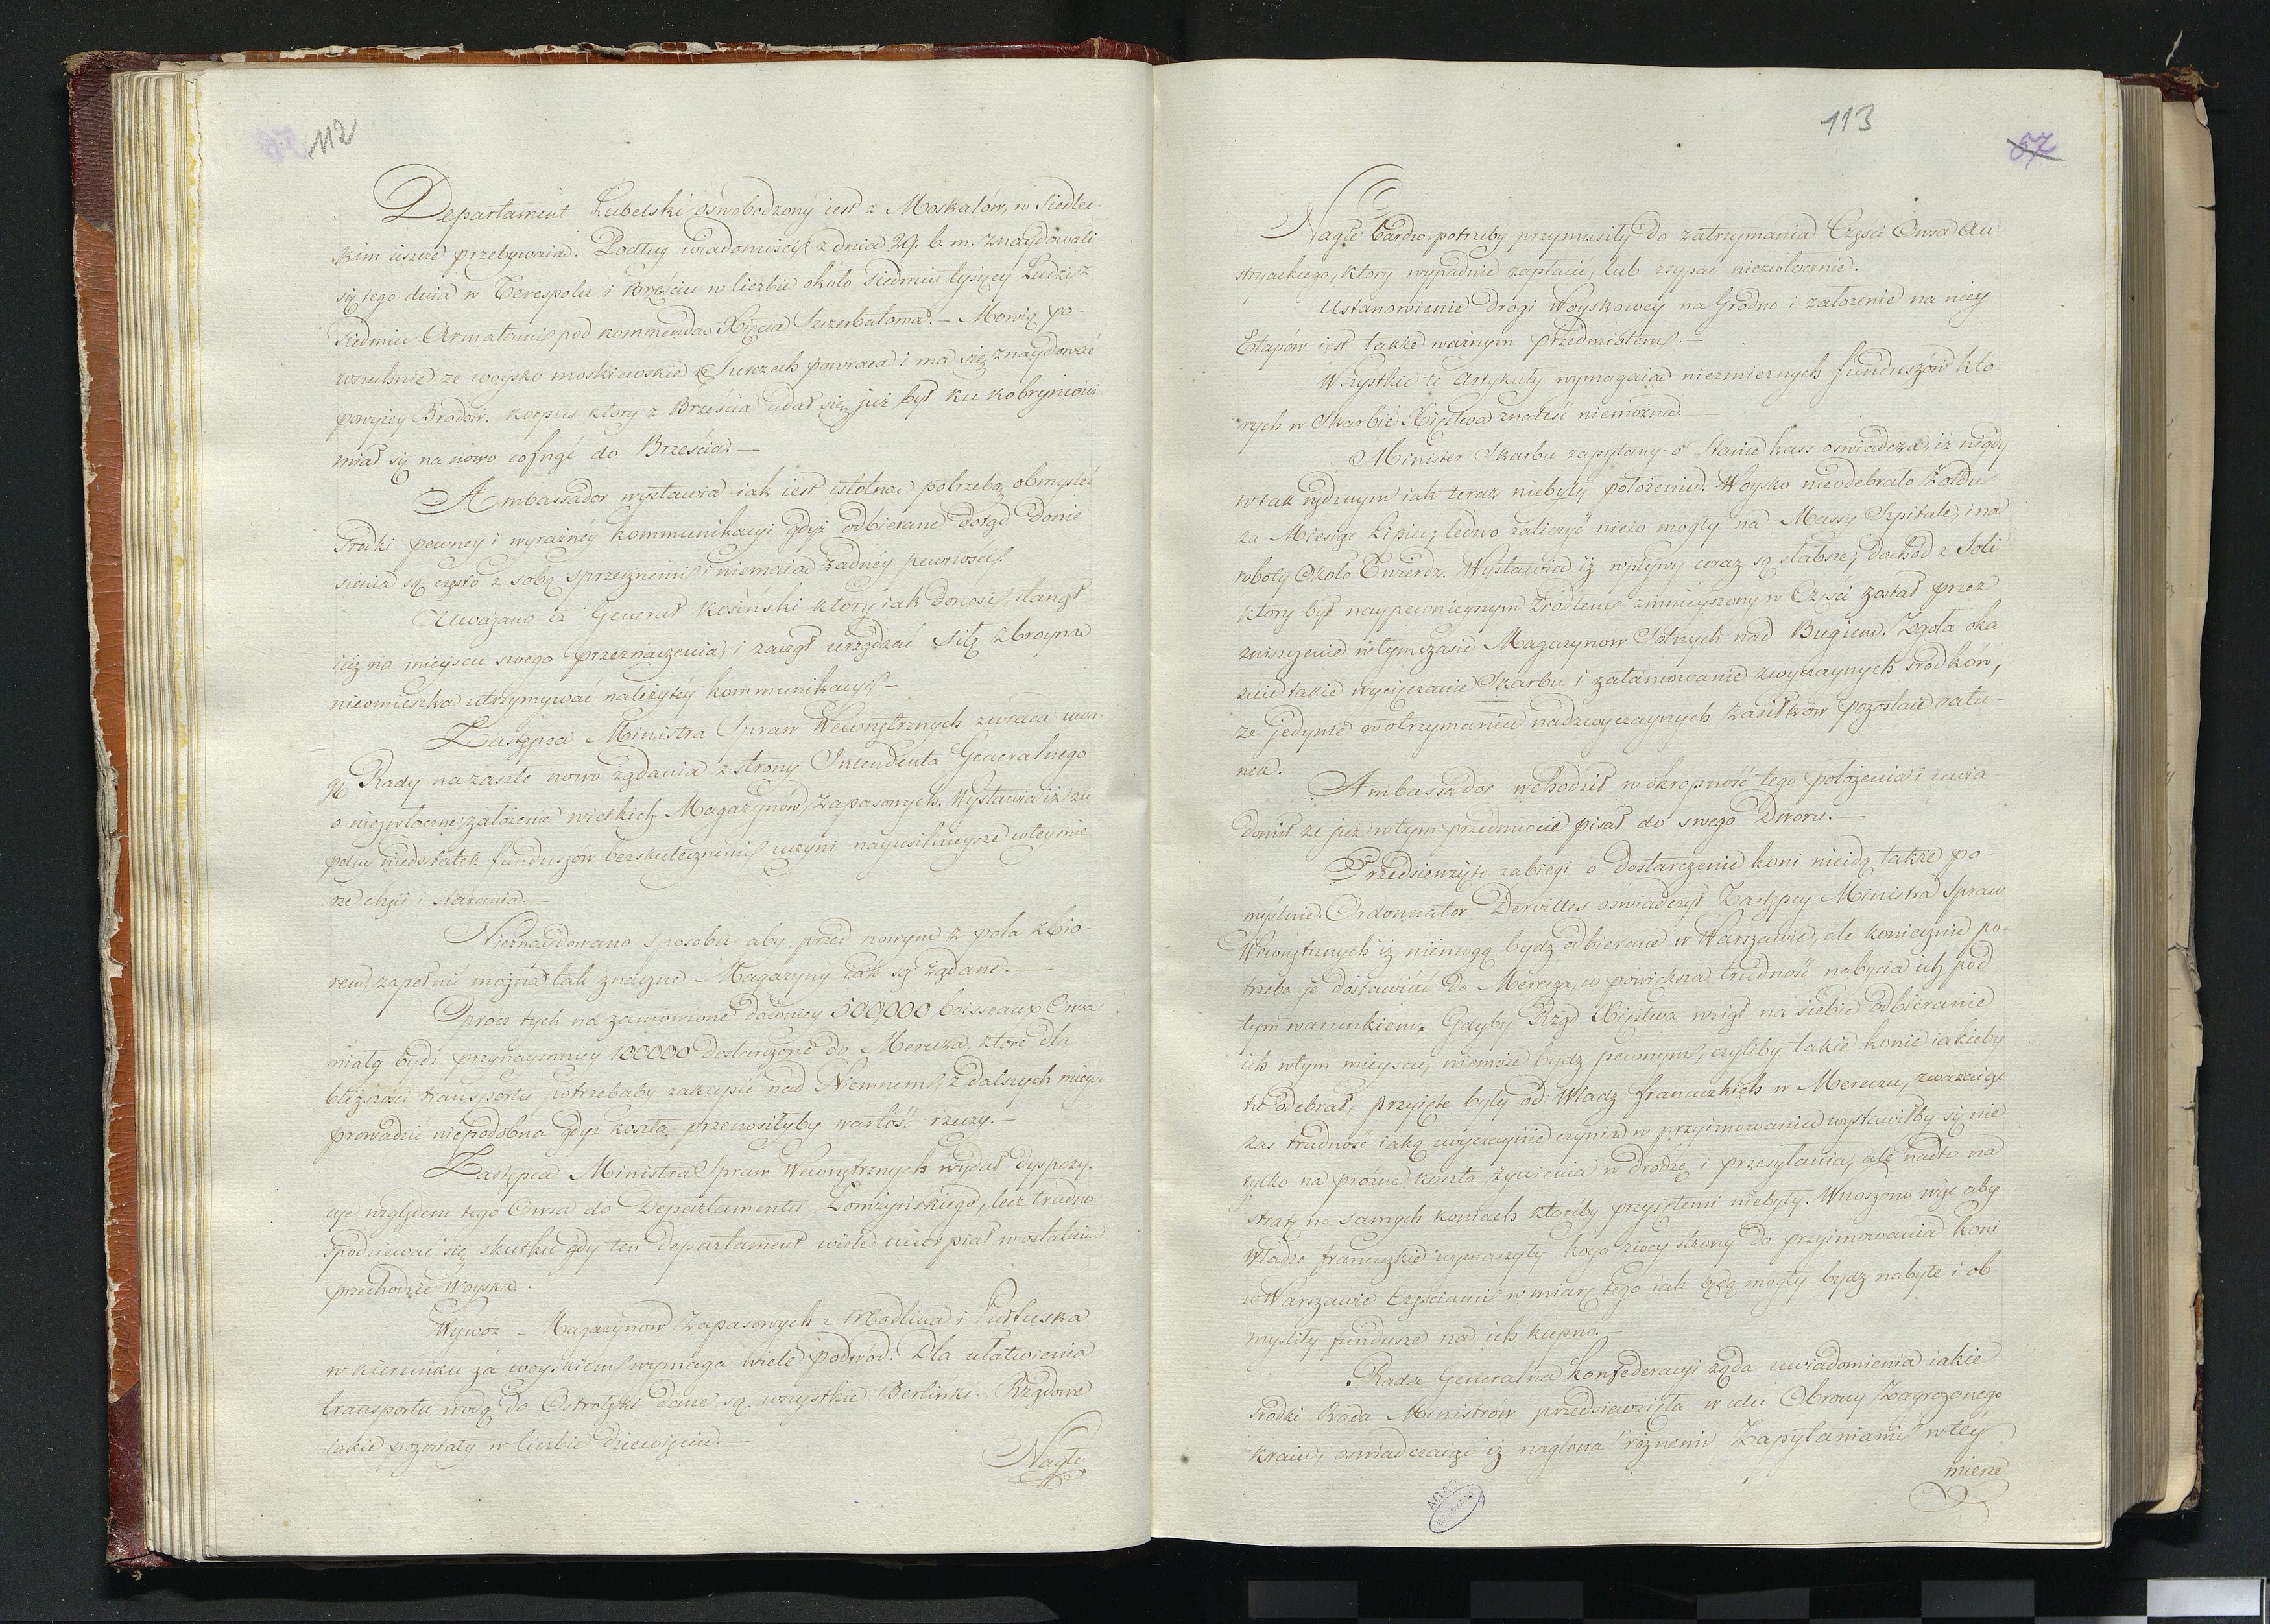 112
Departament Lubelski oswobodzony iest z Moskalów, w Siedlec-
kim ieszcze przebywaią. Podług wiadomości z dnia 29. b. m. znaydowali
się tego dnia w Terespolu i Brześciu w liczbie około siedmiu tysięcy Ludzi z
siedmiu Armatami pod kommendą Xięcia Szczerbatowa. – Mowią po-
wszechnie ze woysko moskiewskie z Turczech powraca i ma się znaydować
powyżey Brodów. Korpus ktory z Brześcia udał się już był ku Kobryniowi
miał się na nowo cofnąć do Brześcia. –
Ambassador wystawia iak iest istotną potrzebą obmyśleć
srodki pewney i wyraźnéy kommunikacyi gdyż odbierane dotąd donie
sienia są często z sobą sprzecznemi i niemaią żadnéy pewności.
Uważano iż Generał Kosiński ktory iak donosi, stanął
iuż na mieyscu swego przeznaczenia i zaczął urządzać siłę zbroyną
nieomieszka utrzymywać należytéy kommunikacyi –
Zastępca Ministra Spraw Wewnętrznych zwraca uwa
gę Rady na zaszłe nowo żądania z strony Intendenta Generalnego
o niezwłoczne założenie wielkich Magazynów Zapasowych. Wystawia iż zu
pełny niedostatek funduszow bezskutecznemi czyni nayusilnieysze w tey mie
rze chęci i starania. –
Nieznaydowano sposobu aby przed nowym z pola zbio-
rem, zapełnić można tak znaczne Magazyny iak są żądane. –
Oprocz tych na zamowione dawniey 500,000 boisseaux Owsa
miałą bydź przynaymniey 100000 dostarczone do Merecza, które dla
bliższości transportu potrzebaby zakupić nad Niemnem, z dalszych mieysc
prowadzić niepodobna gdyż koszta przenosiłyby wartość rzeczy. –
Zastępca Ministra Spraw Wewnętrznych wydał dyspozy-
cye względem tego Owsa do Departamentu Łomżyńskiego, lecz trudno
spodziewać się skutku gdy ten Departament wiele ucierpiał w ostatnim
przechodzie Woyska.
Wywoz Magazynow Zapasowych z Modlina i Pułtuska
w kierunku za woyskiem wymaga wiele podwod. Dla ułatwienia
transportu wodą do Ostrołęki dane są wszystkie Berlinki Rządowe
iakie pozostały w liczbie dziewięciu. –
Nagłe
113
57
Nagłe bardzo potrzeby przymusiły do zatrzymania Części Owsa Au-
stryackiego, ktory wypadnie zapłacić, lub zsypać niezwłocznie.
Ustanowienie drogi Woyskowey na Grodno i założenie na niey
Etapów iest także ważnym przedmiotem. –
Wszystkie te Artykuły wymagaią niezmiernych funduszów kto-
rych w Skarbie Xięstwa znaleść niemożna.
Minister Skarbu zapytany o stanie kass oswiadcza, iż nigdy
w tak nędznym iak teraz niebyły położeniu. Woysko nieodebrało Żołdu
za Miesiąc Lipiec; ledwo zaliczyć nieco mogły na Massy Szpitale, i na
roboty około Twierdz. Wystawia iż wpływy coraz są słabsze; dochód z Soli
ktory był naypewnieyszym źródłem zmnieyszony w Części został przez
zniszczenie w tymczasie Magazynow Solnych nad Bugiem. Zgoła oka
zuie takie wycięczenie Skarbu i zatamowanie zwyczaynych srodków,
ze jedynie w otrzymaniu nadzwyczaynych zasiłków pozostaie ratu-
nek.
Ambassador wchodził w okropność tego położenia i uwia-
domił ze już w tym przedmiocie pisał do swego Dworu. –
Przedsiewzięte zabiegi o dostarczenie koni nieidą także po-
myślnie. Ordonnator Dervilles oświadczył Zastępcy Ministra Spraw
Wewnętrznych iż niemogą bydz odbierane w Warszawie, ale koniecznie po-
trzeba je dostawiać do Merecza, co powiększa trudność nabycia ich pod
tym warunkiem. Gdyby Rząd Xięstwa wziął na siebie odbieranie
ich w tym mieyscu, niemoże bydz pewnym, czyliby takie konie iakieby
tu odebrał, przyięte były od Władz francuzkich w Mereczu, zwazaiąc
zas trudność iaką zwyczaynie czynią w przyimowaniu wystawiłby się nie
tylko na próżne koszta żywienia w drodze i przesyłania, ale nadto na
stratę na samych koniach ktoréby przyiętemi niebyły. Wnoszono więc aby
Władze francuzkie wyznaczyły kogo z swey strony do przyimowania koni
w Warszawie częściami w miarę tego iak będą mogły bydz nabyte i ob-
myslity fundusze na ich kupno. –
Rada Generalna Konfederacyi żąda uwiadomienia iakie
srodki Rada Ministrow przedsiewzięła w celu Obrony Zagrożonego
Kraiu, oswiadczaiąc iż naglona róznemi Zapytaniami w téy
mierze